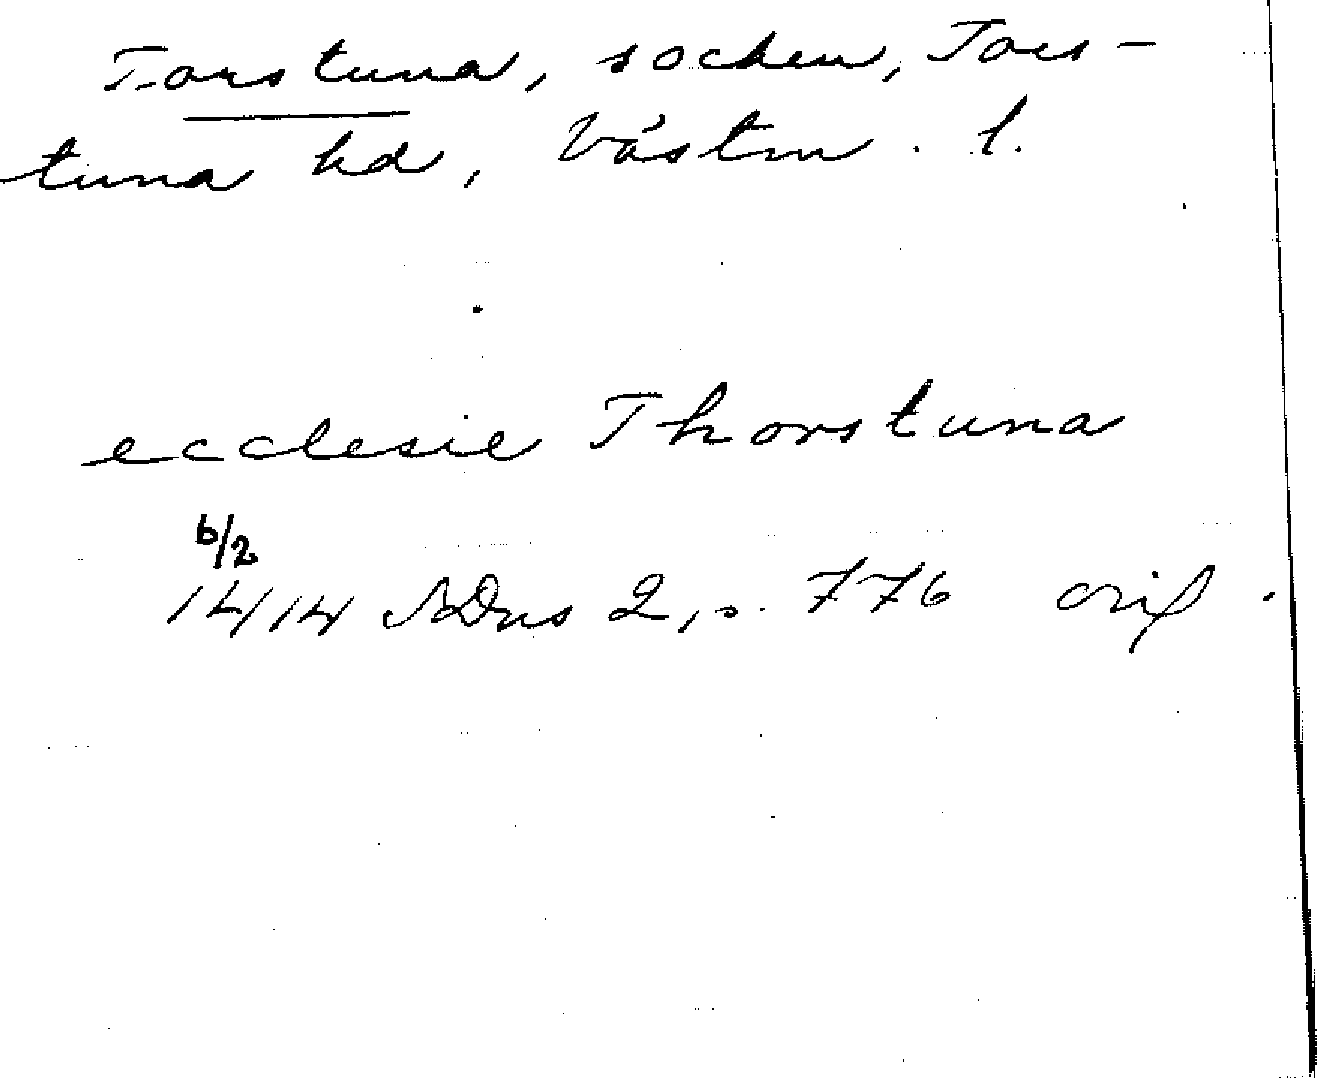 Torstuna, socken, Tors-
tuna hd, Västm. l.
ecclesie Thorstuna
6/2
1414 SDns 2, s. 776 orig.